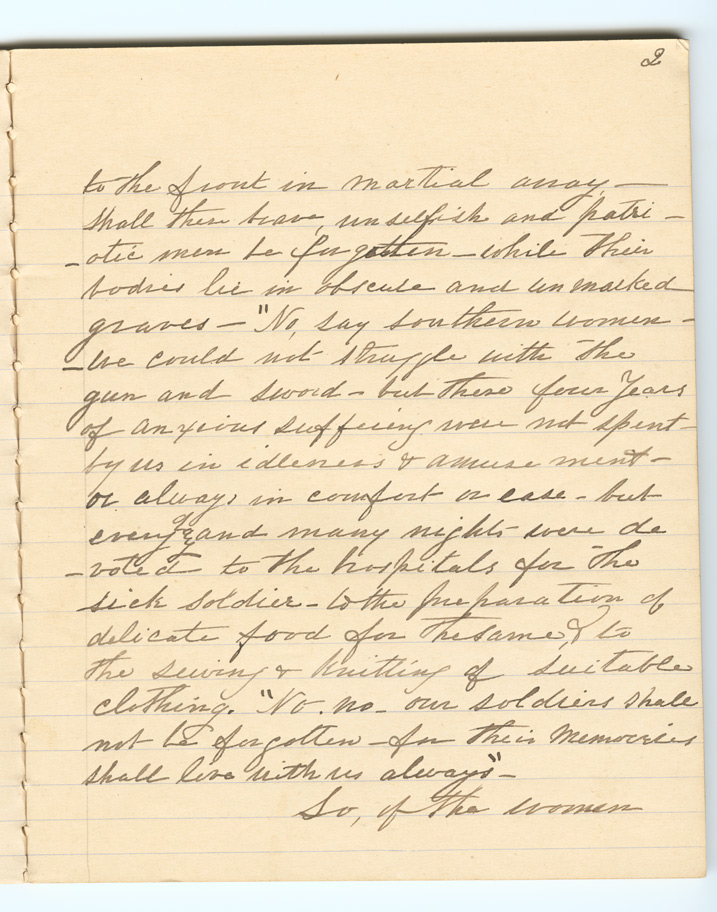 2
to the front in martial array —
shall these brave, unselfish and patri -
- otic men be forgotten — while their
bodies lie in obscure and unmarked
graves — "No, say southern women -
- we could not struggle with the
gun and sword - but these four years
of anxious suffering were not spent
by us in idleness & amusement -
or always in comfort or ease - but
every day and many nights were de
- voted to the hospitals for the
sick soldier - to the preparation of
delicate food for the same, & to
the sewing & knitting of suitable
clothing. "No. no - our soldiers shall
not be forgotten - for their memories
shall live with us always" -
So, if the women